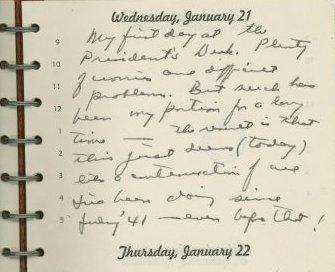 Wednesday, January 21
9 My first day at the
10 President's Desk. Plenty
of worries and difficult
11 problems. But such has
12 been my portion for a long
1 time — the result is that
2 this just seems (today)
3 like a continuation of all
4 I've been doing since
5 July '41 — even before that!
Thursday, January 22